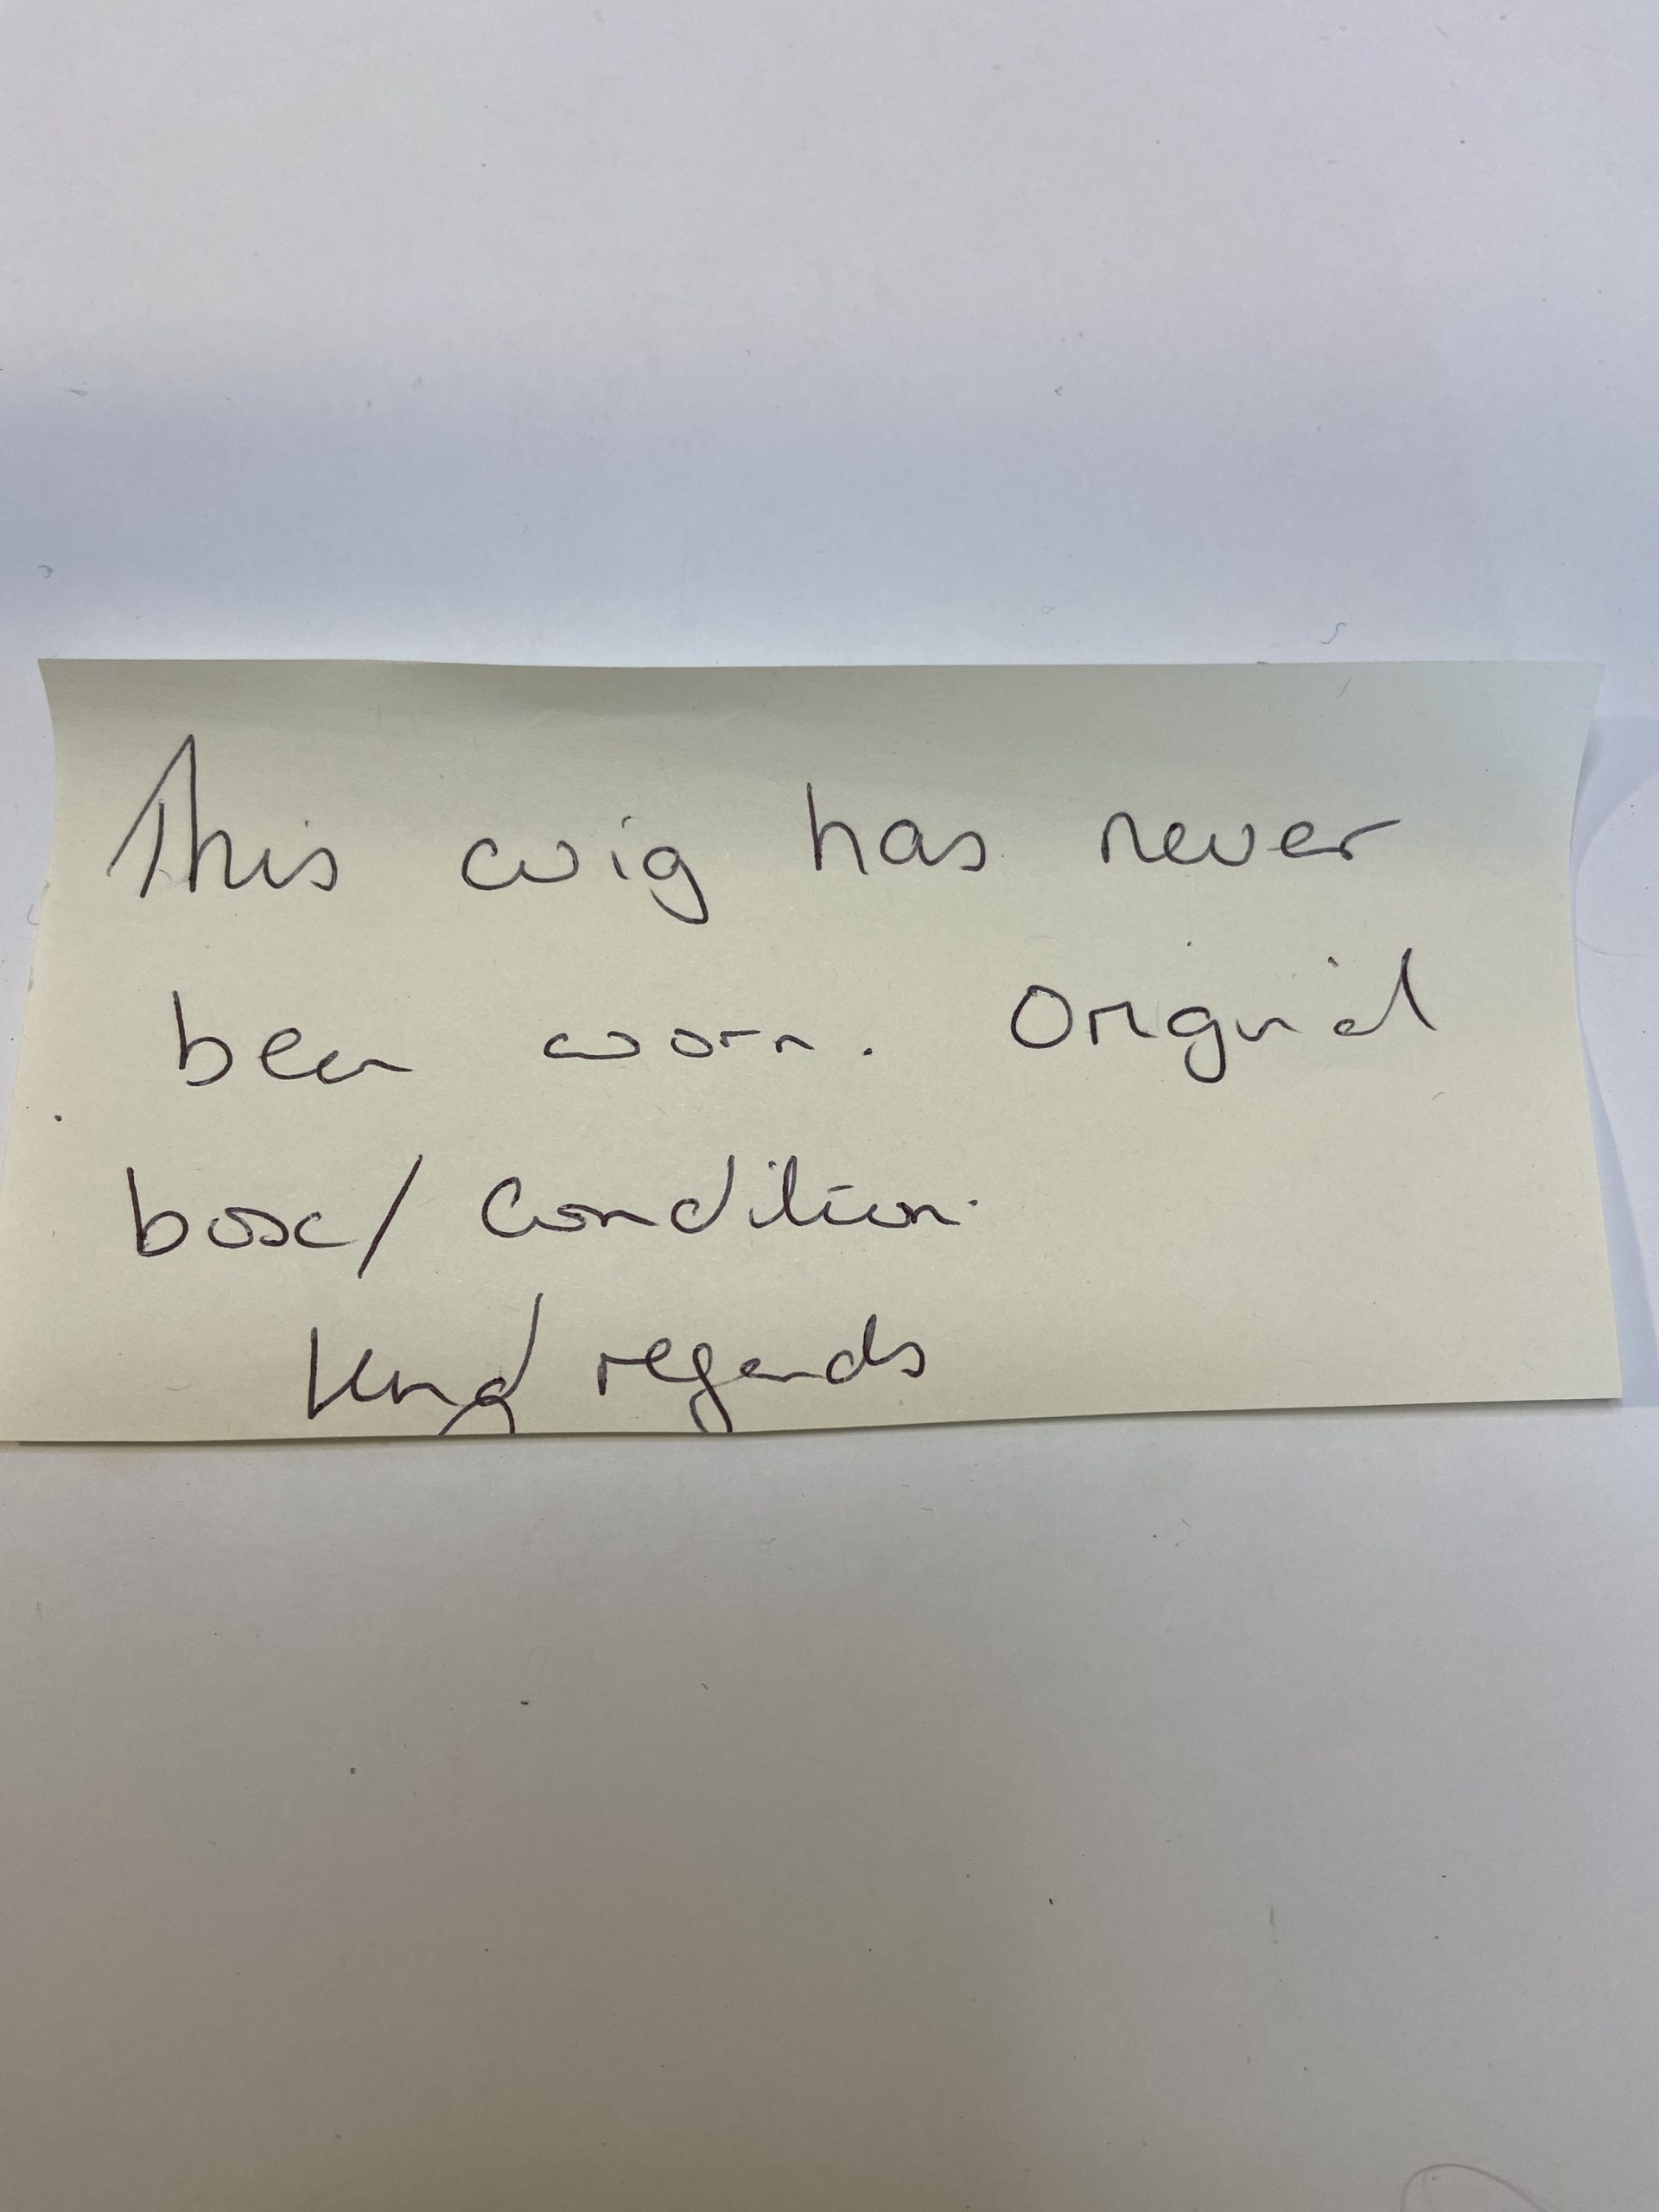 This wig has never
been worn. Original
box/ Condition.
Kind regards